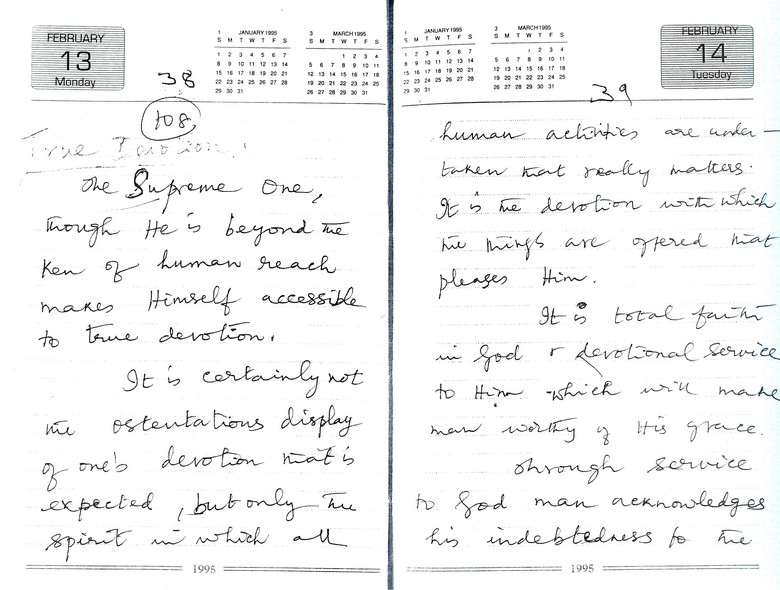 FEBRUARY
13
Monday
38
1 JANUARY 1995
S M T W T F S
1 2 3 4 5 6 7
8 9 10 11 12 13 14
15 16 17 18 19 20 21
22 23 24 25 26 27 28
29 30 31
3 MARCH 1995
S M T W T F S
1 2 3 4
5 6 7 8 9 10 11
12 13 14 15 16 17 18
19 20 21 22 23 24 25
26 27 28 29 30 31
108
True Devotion.
The Supreme One,
though He is beyond the
ken of human reach
makes Himself accessible
to true devotion.
It is certainly not
the ostentations display
of one's devotion that is
expected, but only the
spirit in which all
1995
1 JANUARY 1995
S M T W T F S
1 2 3 4 5 6 7
8 9 10 11 12 13 14
15 16 17 18 19 20 21
22 23 24 25 26 27 28
29 30 31
3 MARCH 1995
S M T W T F S
1 2 3 4
5 6 7 8 9 10 11
12 13 14 15 16 17 18
19 20 21 22 23 24 25
26 27 28 29 30 31
FEBRUARY
14
Tuesday
39
human activities are under-
taken that really matters.
It is the devotion with which
the things are offered that
pleases Him.
It is total faith
in God & devotional service
to Him which will make
man worthy of His grace.
Through service
to God man acknowledges
his indebtedness to the
1995